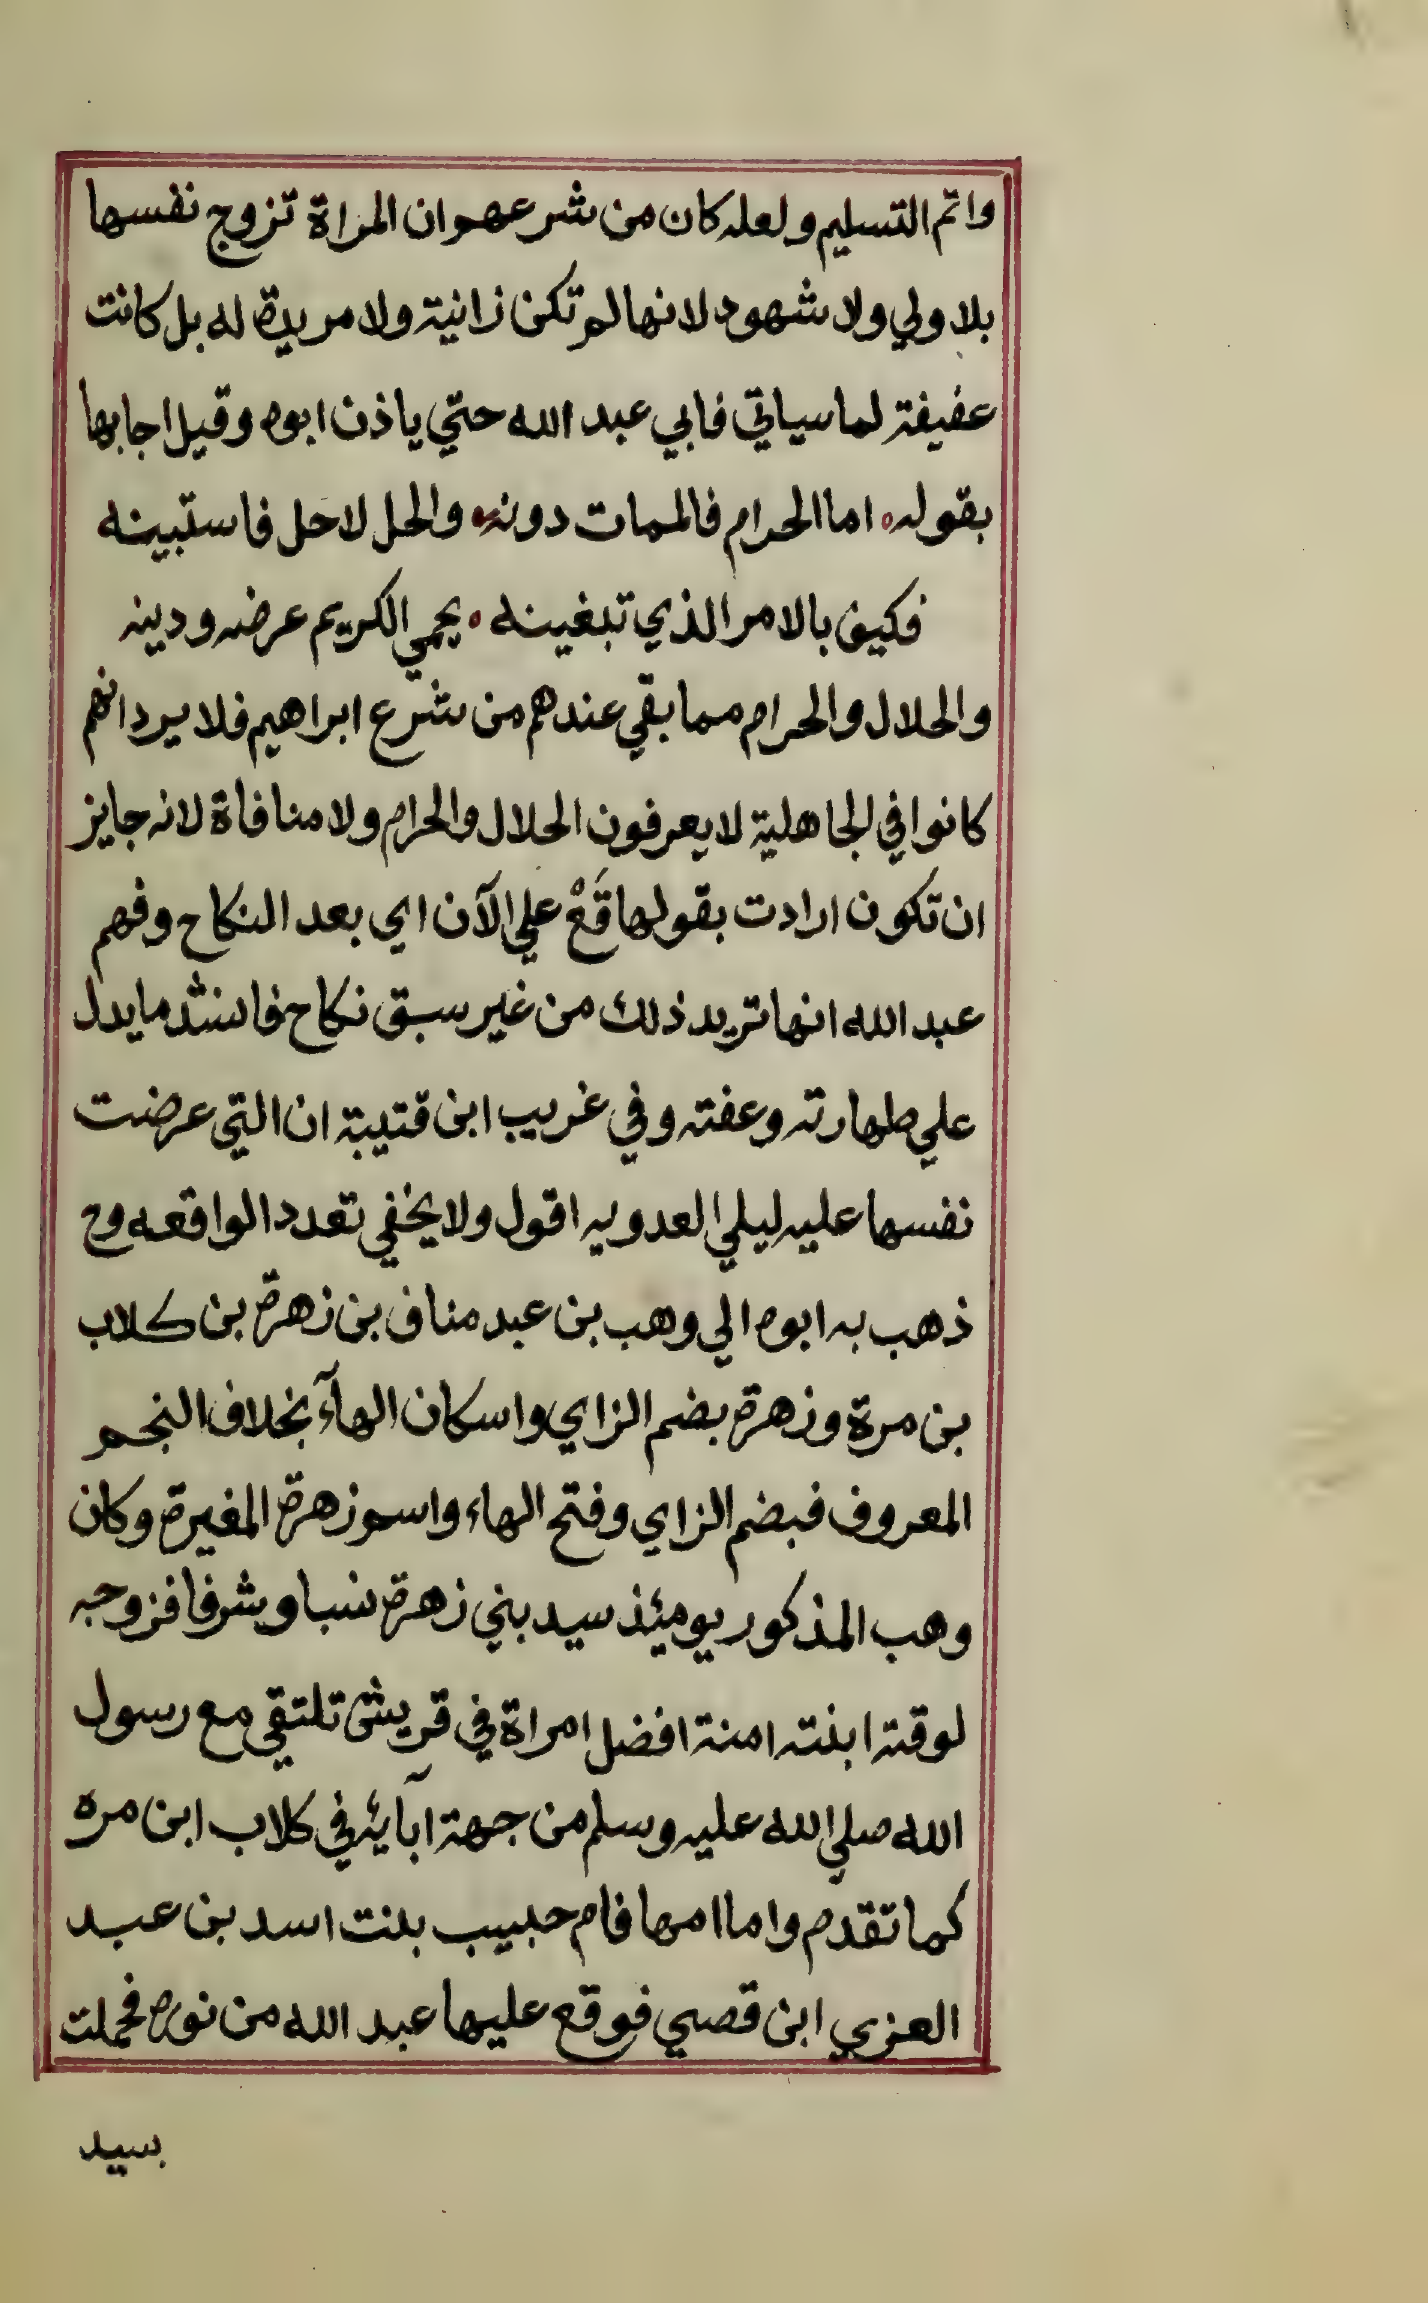 واتم التسليم ولعله كان من شرعهم ان المراة تزوج نفسها
بلا ولي ولا شهود لانها لم تكن زانية ولا مريدة له بل كانت
عفيفة لما سياتي فابي عبد الله حتي ياذن ابوه وقيل اجابها
بقوله اما الحرام فالممات دونه والحل لا حل فاستبينه
فكيف بالامر الذي تبغينه يحمي الكريم عرضه ودينه
والحلال والحرام مما بقي عندهم من شرع ابراهيم فلا يرد انهم
كانوا في الجاهلية لا يعرفون الحلال والحرام ولا منافاة لانه جايز
ان تكون ارادت بقولها قَعْ علي الآن اي بعد النكاح وفهم
عبد الله انها تريد ذلك من غير سبق نكاح فانشد ما يدل
علي طهارته وعفته وفي غريب ابن قتيبة ان التي عرضت
نفسها عليه ليلي العدويه اقول ولا يخفي تعدد الواقعه وح
ذهب به ابوه الي وهب بن عبد مناف بن زهرة بن كلاب
بن مرة وزهرة بضم الزاي واسكان الهآء بخلاف النجم
المعروف فبضم الزاي وفتح الهاء واسم زهرة المغيرة وكان
وهب المذكور يومئذ سيد بني زهرة نسبا وشرفا فزوجه
لوقته ابنته امنة افضل امراة في قريش تلتقي مع رسول
الله صلي الله عليه وسلم من جهة آبآيه في كلاب ابن مره
كما تقدم واما امها فام حبيب بنت اسد بن عبد
العزي ابن قصي فوقع عليها عبد الله من نوره فحملت
بسيد